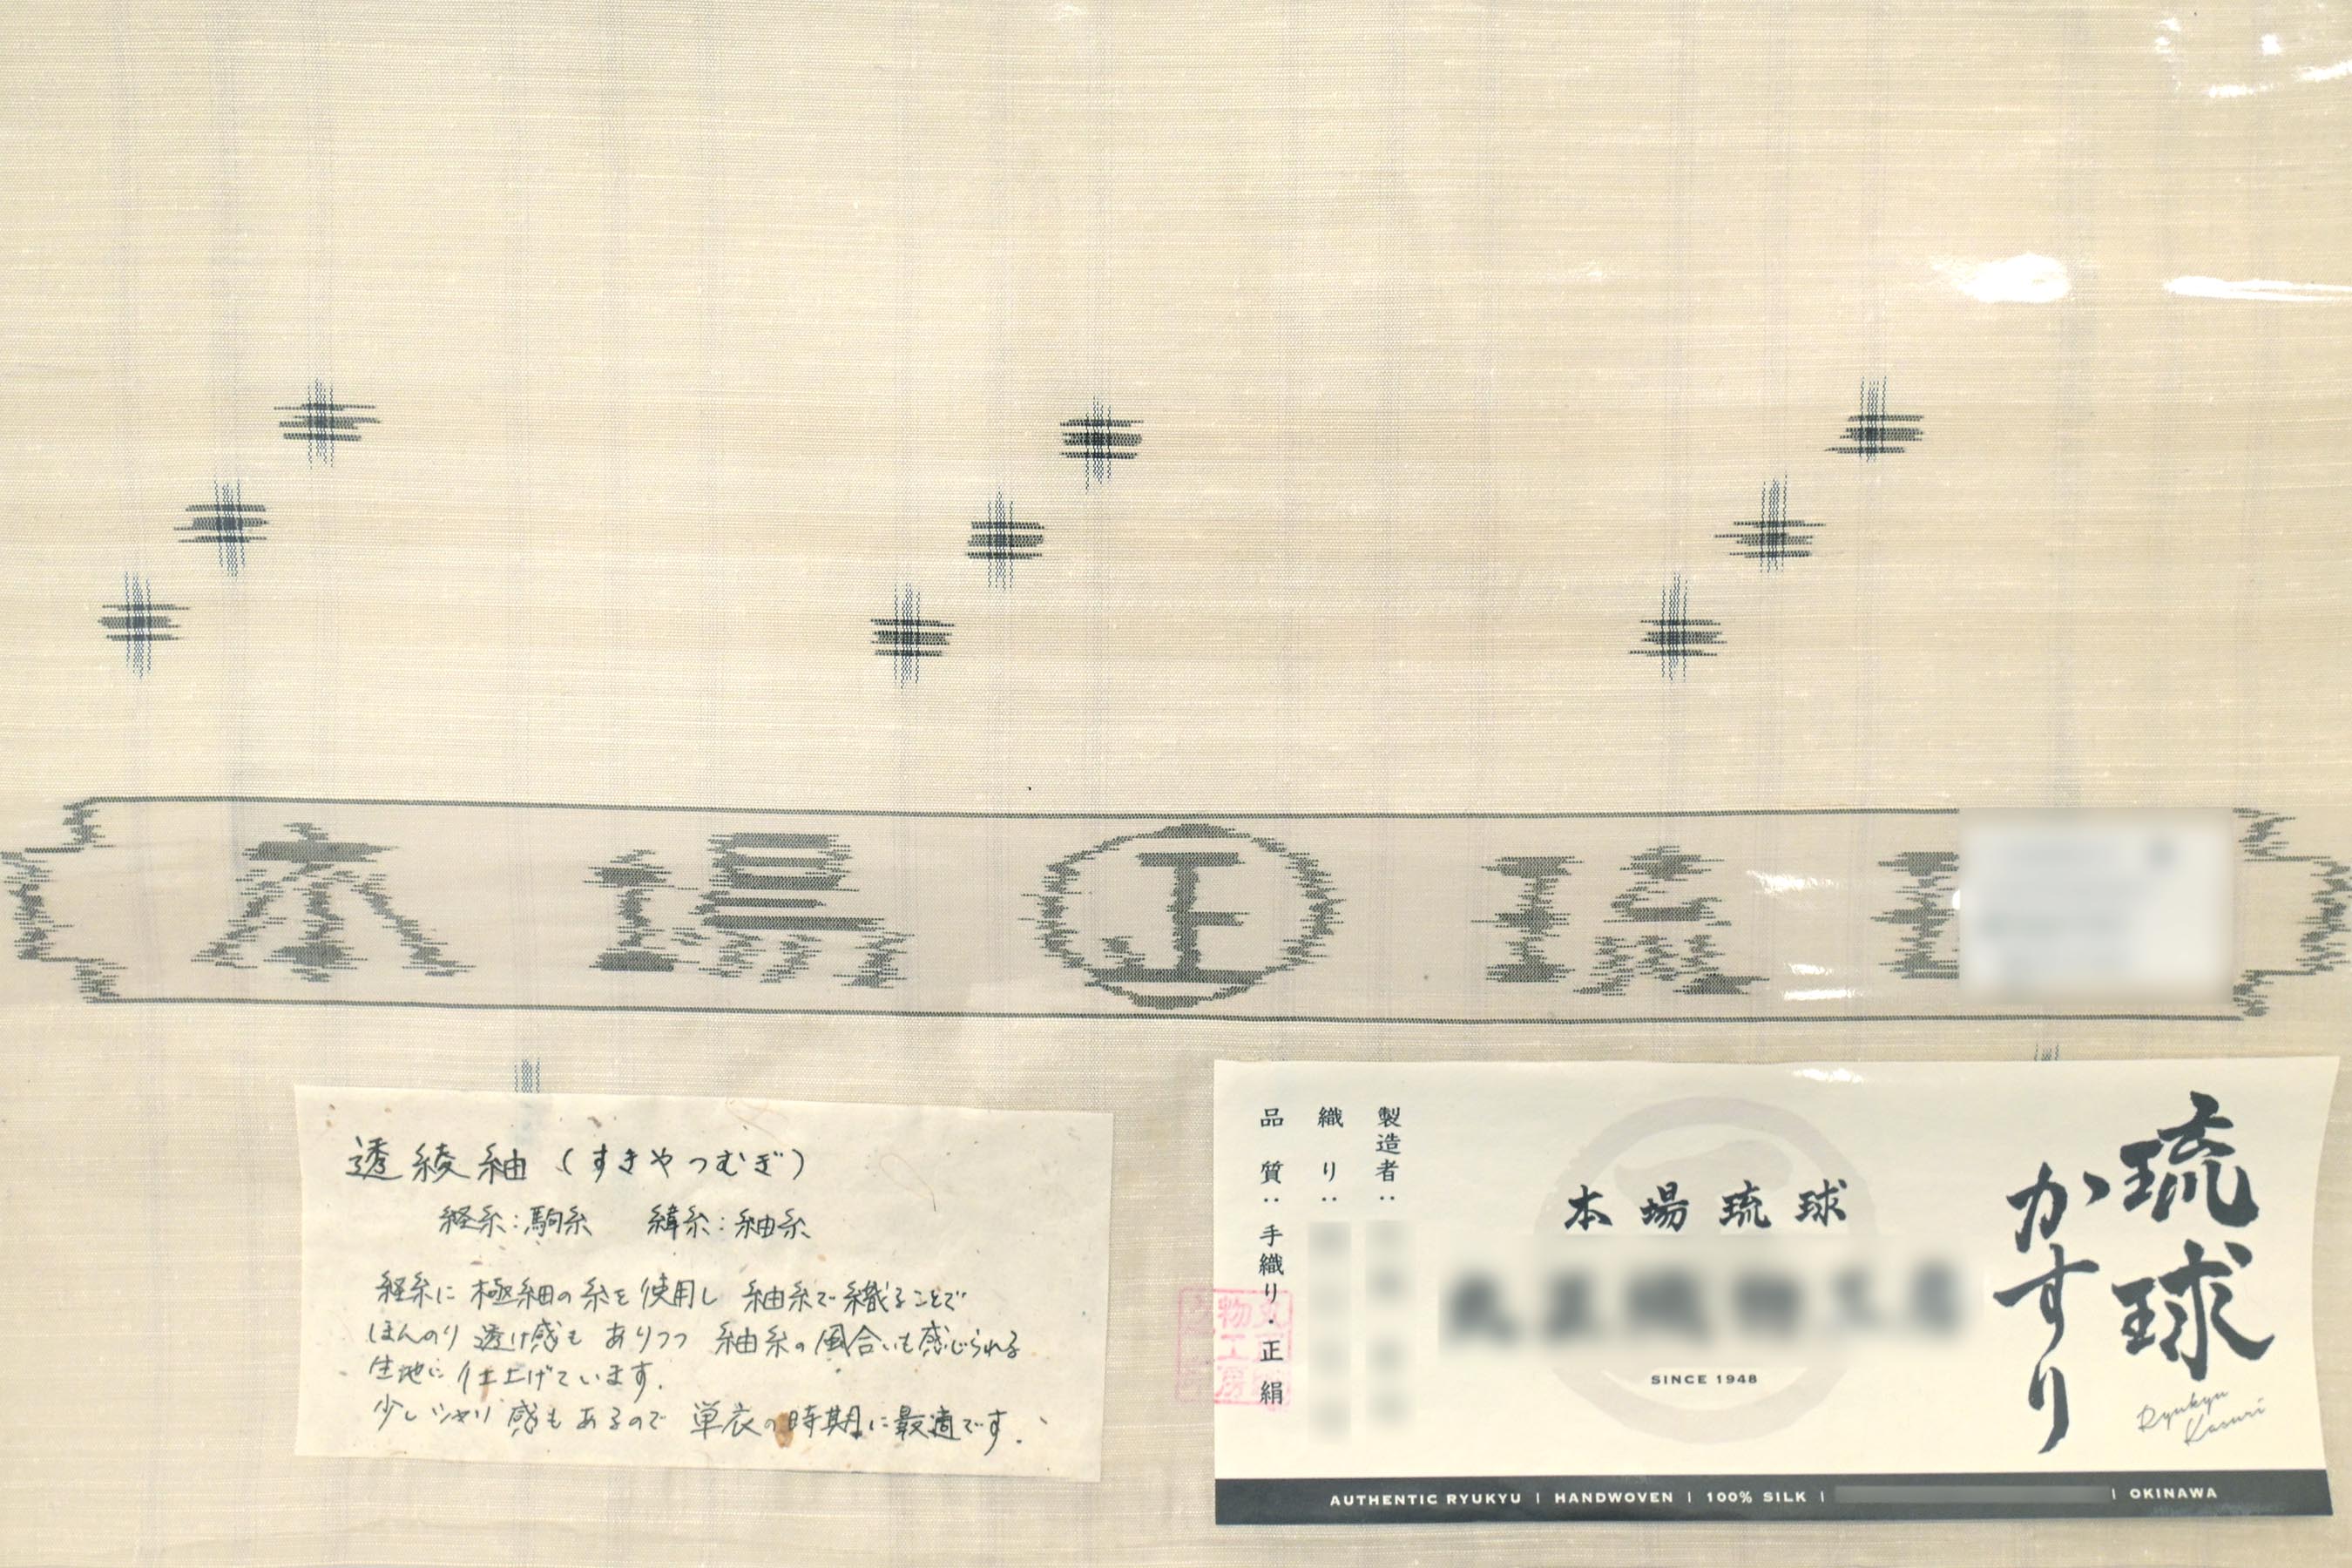 本場㊣琉
透綾紬（すきやつむぎ）
経糸：駒糸　緯糸：紬糸
経糸に極細の糸を使用し 紬糸で織ることで
ほんのり透け感も ありつつ 紬糸の風合いも感じられる
生地に仕上げています.
少しシャリ感もあるので 単衣の時期に最適です.
琉球
かすり
Ryukyu
Kasuri
本場琉球
SINCE 1948
製造者：
織り：
品質：手織り・正絹
AUTHENTIC RYUKYU | HANDWOVEN | 100% SILK | | OKINAWA